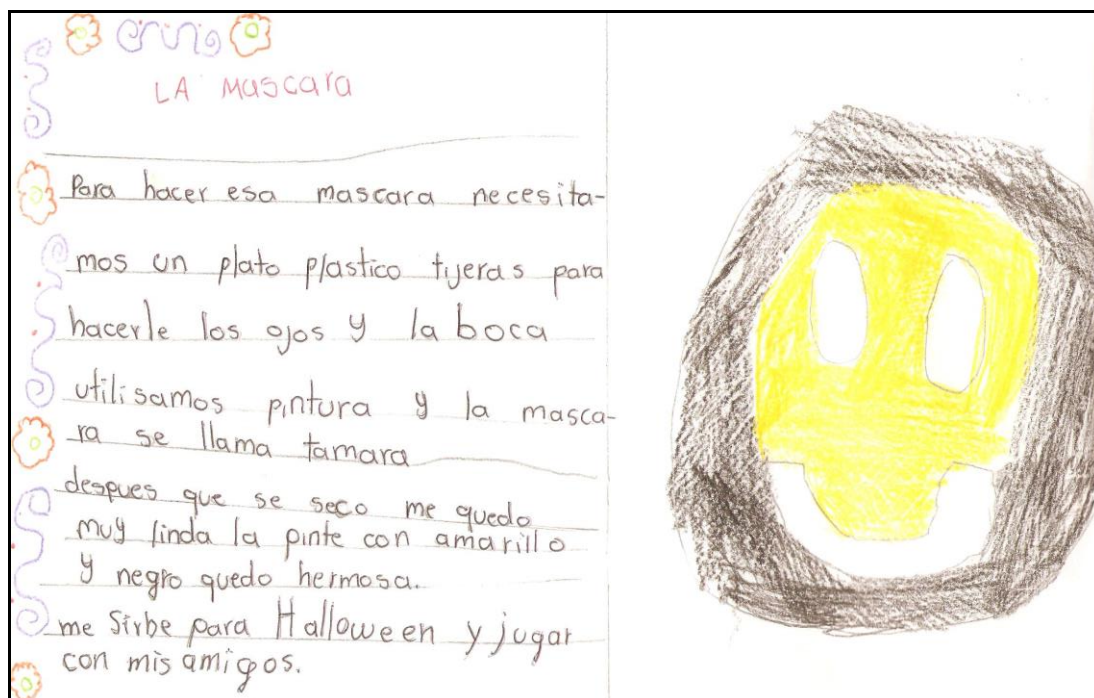 ering
LA Mascara
Para hacer esa mascara necesita-
mos un plato plastico tijeras para
hacerle los ojos y la boca
utilisamos pintura y la masca-
ra se llama tamara
despues que se seco me quedo
muy linda la pinte con amarillo
y negro quedo hermosa.
me Sirbe para Halloween y jugar
con mis amigos.